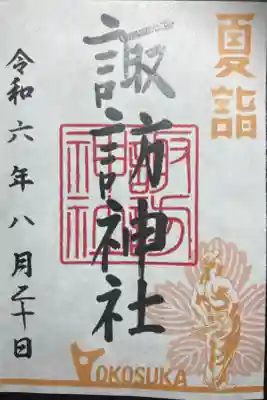 夏詣
諏訪神社
諏訪
神社
令和六年八月二十日
YOKOSUKA